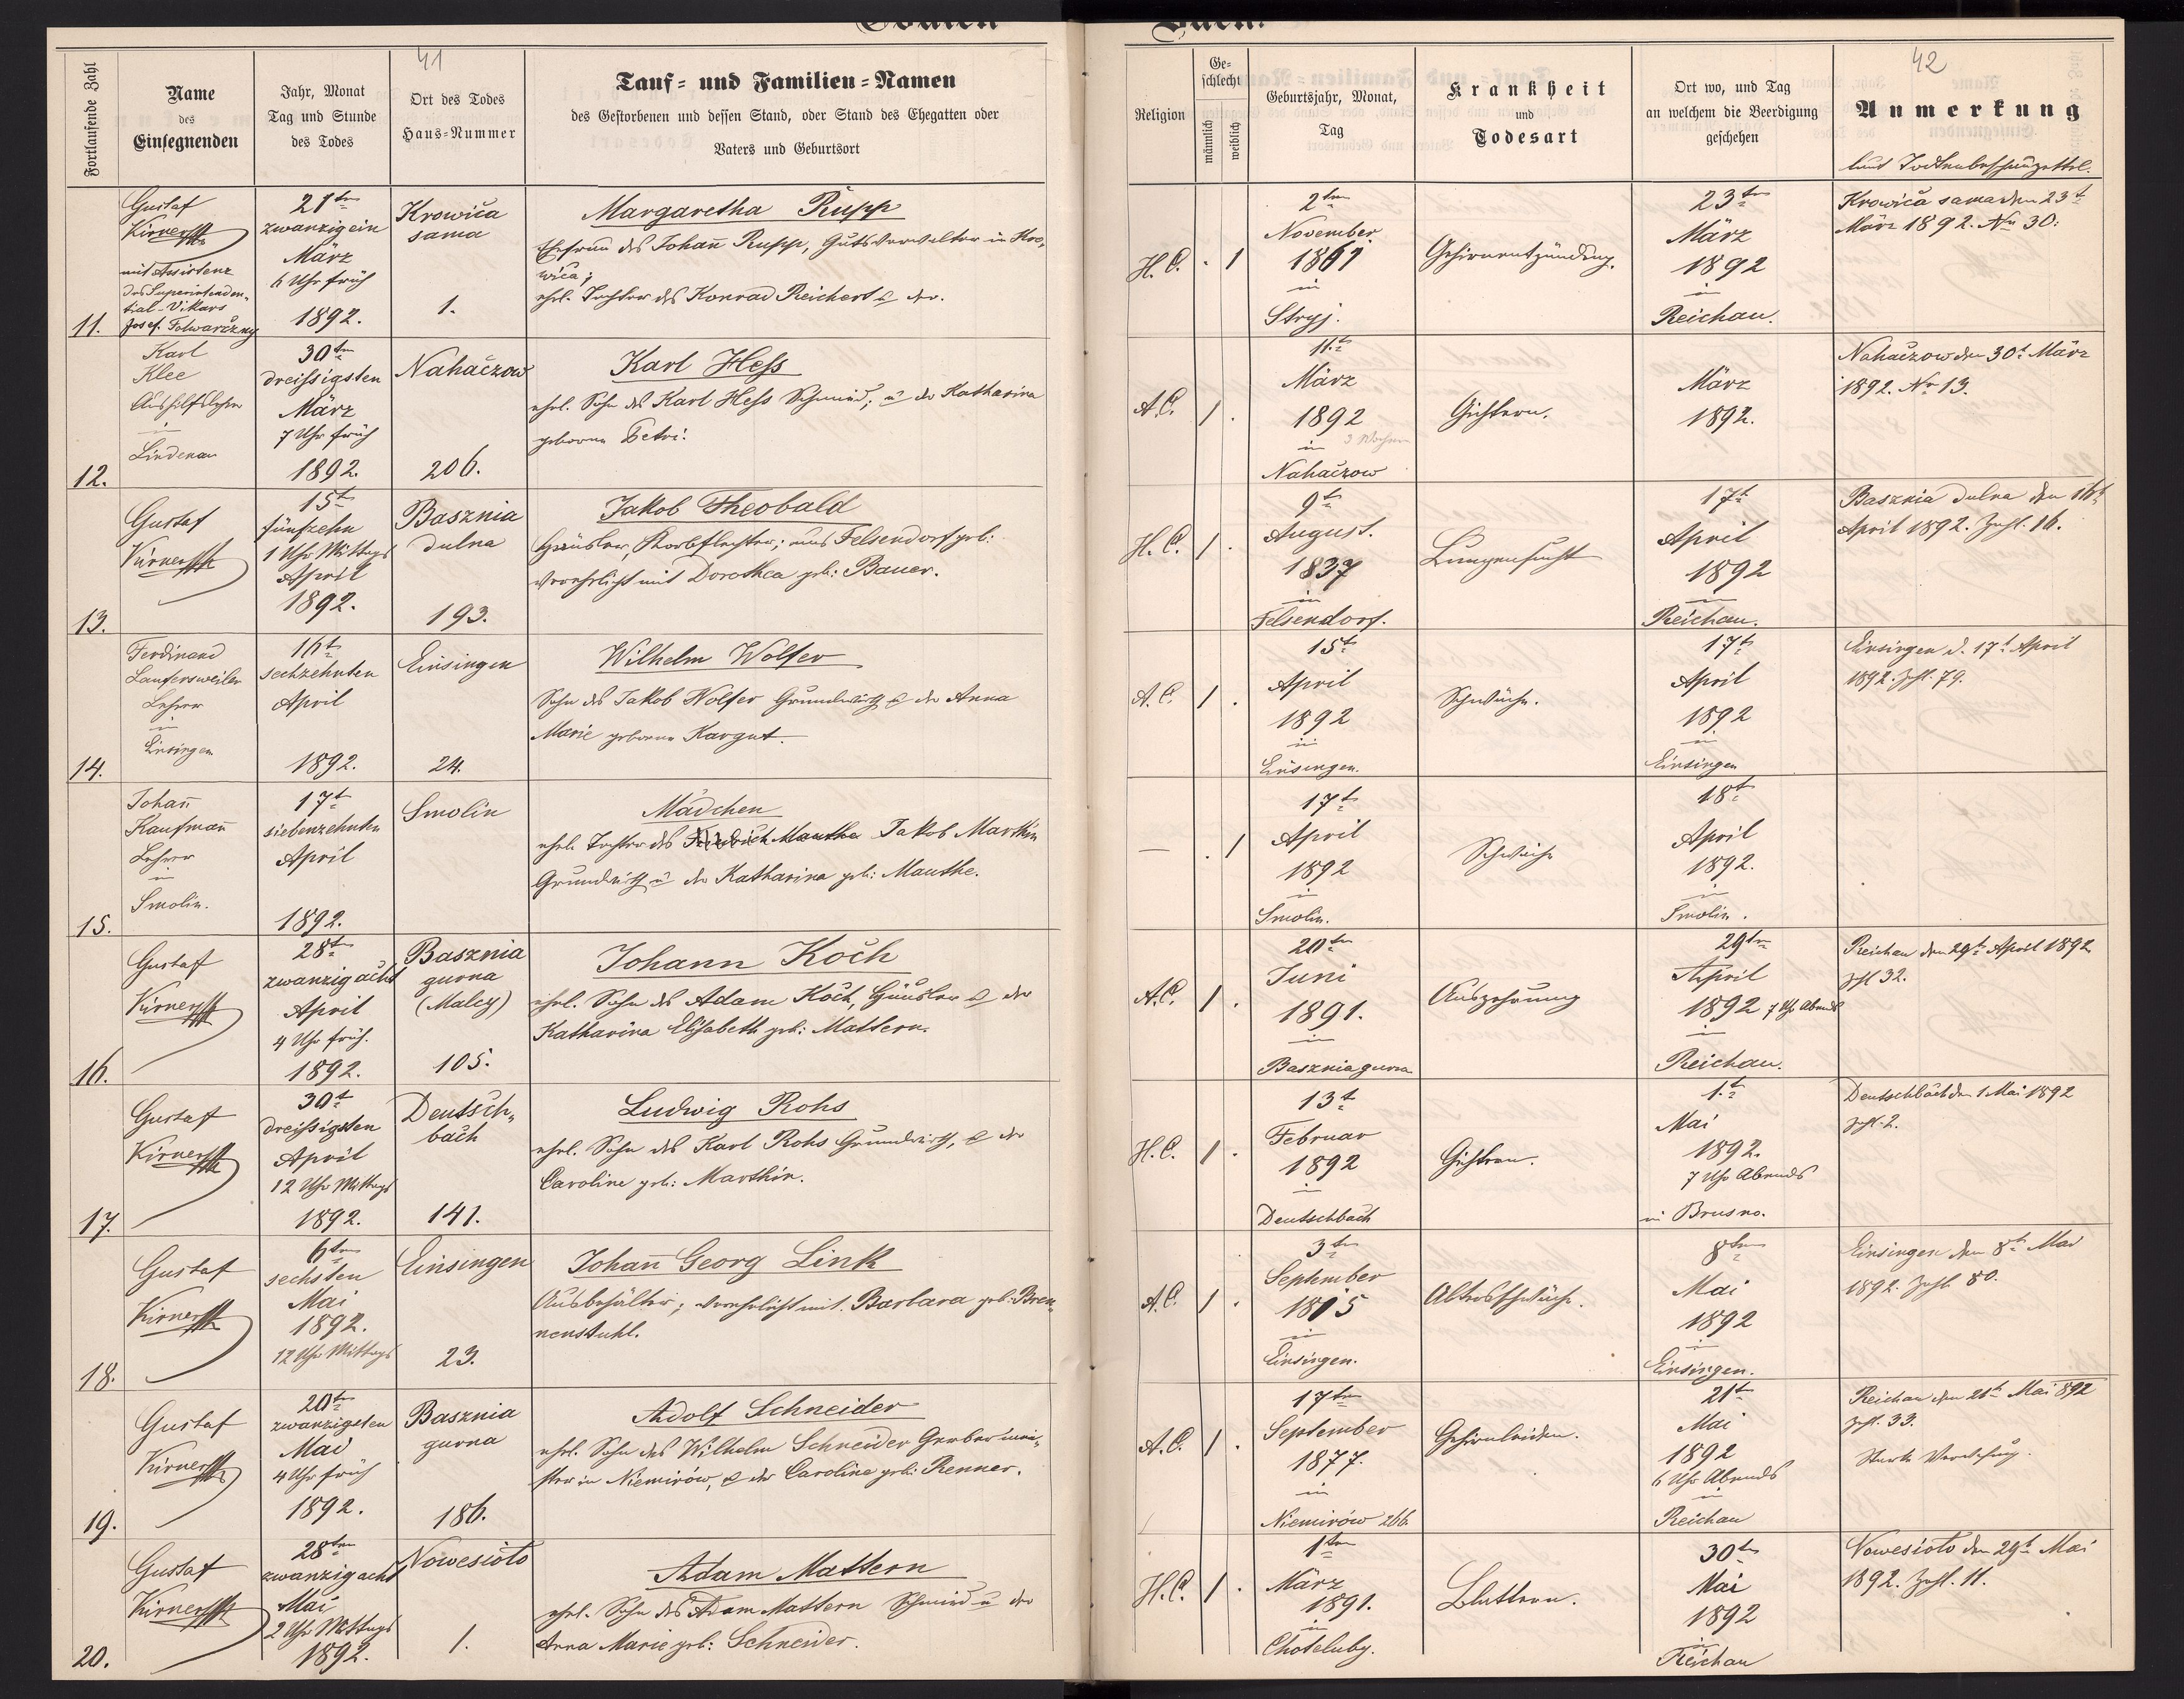 41
Fortlaufende Zahl
Name
des
Einsegnenden
Jahr, Monat
Tag und Stunde
des Todes
Ort des Todes
Haus-Nummer
Tauf- und Familien-Namen
des Gestorbenen und dessen Stand, oder Stand des Ehegatten oder
Vaters und Geburtsort
Religion
Ge-
schlecht
männlich
weiblich
Geburtsjahr, Monat,
Tag
Krankheit
und
Todesart
Ort wo, und Tag
an welchem die Beerdigung
geschehen
42
Anmerkung
laut Todtenbeschauzettel.
11.
Gustaf
Kirner
mit Assistenz
des Superintenden-
tial-Vikars
Josef Folwarczny
21ten
zwanzigein
März
6 Uhr früh
1892.
Krowica
sama
1.
Margaretha Rupp
Ehefrau des Johañ Rupp, Gutsverwalter in Kro-
wica;
ehel. Tochter des Konrad Reichert & der.
H.C. . 1
2ten
November
1861
in
Stryj.
Gehirnentzündung.
23ten
März
1892
in
Reichau.
Krowica sama den 23t
März 1892. No 30.
12.
Karl
Klee
Aushilfslehrer
in
Lindenau
30ten
dreissigsten
März
7 Uhr früh
1892.
Nahaczow
206.
Karl Hess
ehel. Sohn des Karl Hess Schmied, u der Katharina
geborne Petri.
A.C. 1 .
11.t
März
1892
3 Wochen
in
Nahaczow
Gichtern.
März
1892.
Nahaczow den 30t März
1892. No 13.
13.
Gustaf
Kirner
15t
fünfzehn
1 Uhr Mittags
April
1892.
Basznia
dulna
193.
Jakob Theobald
Häusler, Korbflechter; aus Felsendorf geb:
verehelicht mit Dorothea geb: Bauer.
H.C. 1 .
9t
August.
1837
in
Felsendorf.
Lungensucht
17t
April
1892
in
Reichau.
Basznia dulna den 16t
April 1892. Zahl. 16.
14.
Ferdinand
Laufersweiler
Lehrer
in
Einsingen
16t
sechzehnten
April
1892.
Einsingen
24.
Wilhelm Wolfer
Sohn des Jakob Wolfer Grundwirth & der Anna
Marie geborne Kargut.
A.C. 1 .
15t
April
1892
in
Einsingen.
Schwäche.
17t
April
1892
in
Einsingen
Einsingen d. 17t April
1892. Zhl. 79.
15.
Johañ
Kaufmañ
Lehrer
in
Smolin.
17t
siebenzehnten
April
1892.
Smolin
Mädchen
ehel. Tochter des Friedrich Mauthe Jakob Marthin
Grundwirth u der Katharina geb: Mauthe.
— . 1
17t
April
1892
in
Smolin.
Schwäche
18t
April
1892.
in
Smolin.
16.
Gustaf
Kirner
28t
zwanzig acht
April
4 Uhr früh.
1892.
Basznia
gurna
(Maley)
105.
Johann Koch
ehel. Sohn des Adam Koch, Häusler & der
Katharina Elisabeth geb: Mattern.
A.C. 1 .
20ten
Juni
1891.
in
Basznia gurna
Auszehrung
29ten
April
1892 7 Uhr Abends
in
Reichau.
Reichau den 29t April 1892
Zhl 32.
17.
Gustaf
Kirner
30t
dreissigsten
April
12 Uhr Mittags
1892.
Deutsch-
bach
141.
Ludwig Rohs
ehel. Sohn des Karl Rohs Grundwirth, & der
Caroline geb: Marthin.
H.C. 1 .
13t
Februar
1892
in
Deutschbach
Gichtern.
1.t
Mai
1892.
7 Uhr Abends
in Brusno.
Deutschbach den 1 Mai 1892
Zhl. 2.
18.
Gustaf
Kirner
6ten
sechsten
Mai
1892.
12 Uhr Mittags
Einsingen
23.
Johañ Georg Link
Ausbehälter; verehelicht mit Barbara geb: Bren-
nenstuhl.
A.C. 1 .
3ten
September
1815
in
Einsingen.
Altersschwäche.
8ten
Mai
1892
in
Einsingen.
Einsingen den 8t Mai
1892. Zahl 80.
19.
Gustaf
Kirner
20ten
zwanzigsten
Mai
4 Uhr früh
1892.
Basznia
gurna
186.
Adolf Schneider
ehel. Sohn des Wilhelm Schneider Gerbermei-
ster in Niemirów, & der Caroline geb: Renner.
A.C. 1 .
17ten
September
1877.
in
Niemirów 266
Gehirnleiden.
21t
Mai
1892
6 Uhr Abends
in
Reichau
Reichau den 21t Mai 892
Zhl. 33.
Starke Verwesung.
20.
Gustaf
Kirner
28ten
zwanzig acht
Mai
2 Uhr Mittags
1892.
Nowesioto
1.
Adam Mattern
ehel. Sohn des Adam Mattern Schmied u der
Anna Marie geb: Schneider.
H.C. 1 .
1ten
März
1891.
in
Choteluby.
Blattern.
30t
Mai
1892
in
Reichau
Nowesioto den 29t Mai
1892. Zahl. 11.